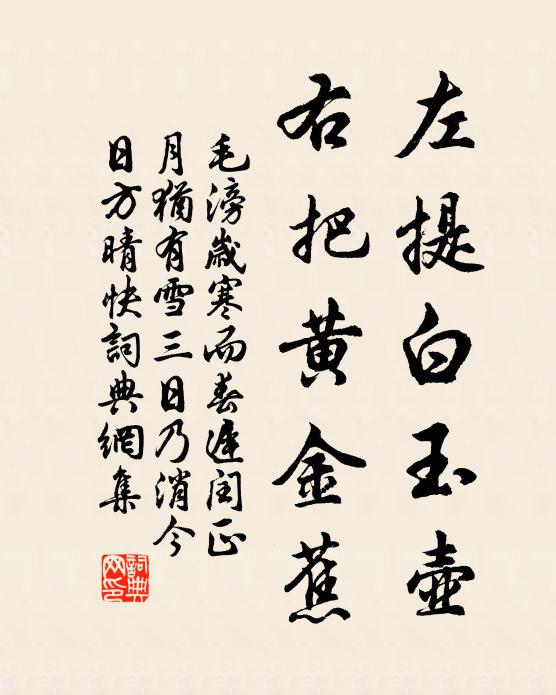 左提白玉壺
右把黄金蕉
毛滂歲寒而春遲閏正
月猶有雪三日乃消今
日方晴快詞典網集
詞典網印